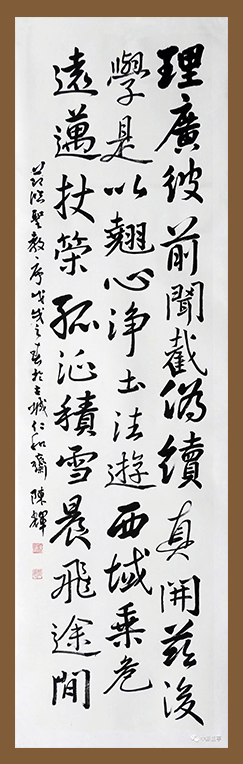 理廣彼前聞截偽續真開茲後
學是以翹心淨土法遊西域乘危
遠邁杖策孤征積雪晨飛途間
節臨聖教序戊戌之春於古城仁和齋陳輝